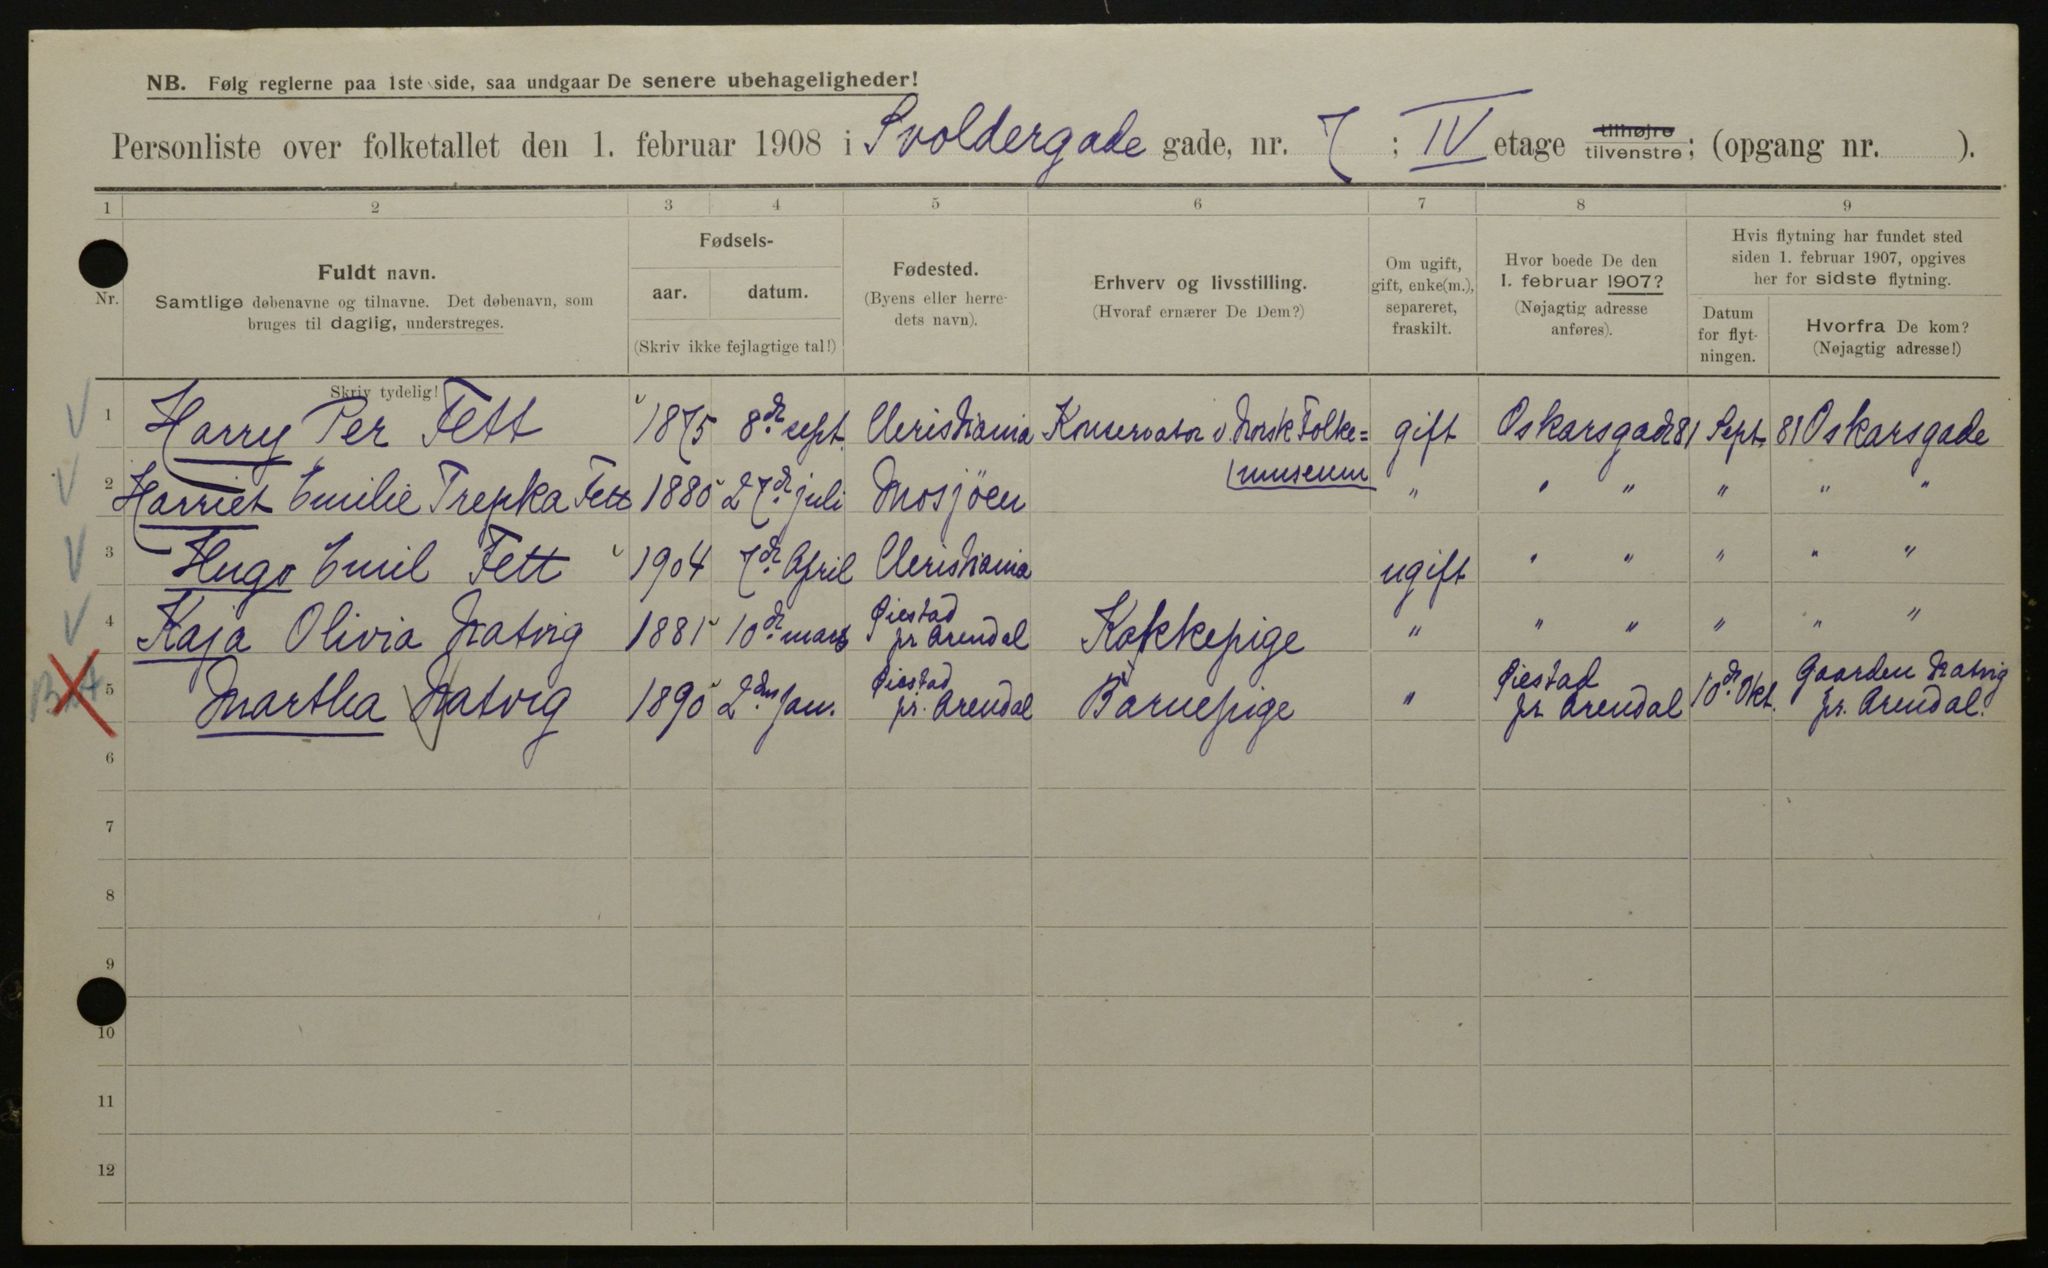 NB. Følg reglerne paa 1ste side, saa undgaar De senere ubehageligheder!
Personliste over folketallet den 1. februar 1908 i Svoldergade gade, nr. 7 ; IV etage tilhøjre tilvenstre; (opgang nr. ).
1 2 3 4 5 6 7 8 9
Nr.
Fuldt navn.
Samtlige døbenavne og tilnavne. Det døbenavn, som
bruges til daglig, understreges.
Skriv tydelig!
Fødsels-
aar. datum.
(Skriv ikke fejlagtige tal!)
Fødested.
(Byens eller herre-
dets navn).
Erhverv og livsstilling.
(Hvoraf ernærer De Dem?)
Om ugift,
gift, enke(m.),
separeret,
fraskilt.
Hvor boede De den
1. februar 1907?
(Nøjagtig adresse
anføres).
Hvis flytning har fundet sted
siden 1. februar 1907, opgives
her for sidste flytning.
Datum
for flyt-
ningen.
Hvorfra De kom?
(Nøjagtig adresse!)
1 Harry Per Fett 1875 8de sept. Christiania Konservator v. Norsk Folke= museum gift Oskarsgade 81 Sept. 81 Oskarsgade
2 Harriet Emilie Trepka Fett 1880 27de juli Mosjöen " " " " " "
3 Hugo Emil Fett 1904 7de April Christiania ugift " " " " "
4 Kaja Olivia Natvig 1881 10de mars Øiestad pr Arendal Kokkepige " " " " " "
5 Martha Natvig 1890 2den Jan. Øiestad pr. Arendal Barnepige " Øiestad pr Arendal 10de Okt. Gaarden Natvig pr. Arendal.
6
7
8
9
10
11
12